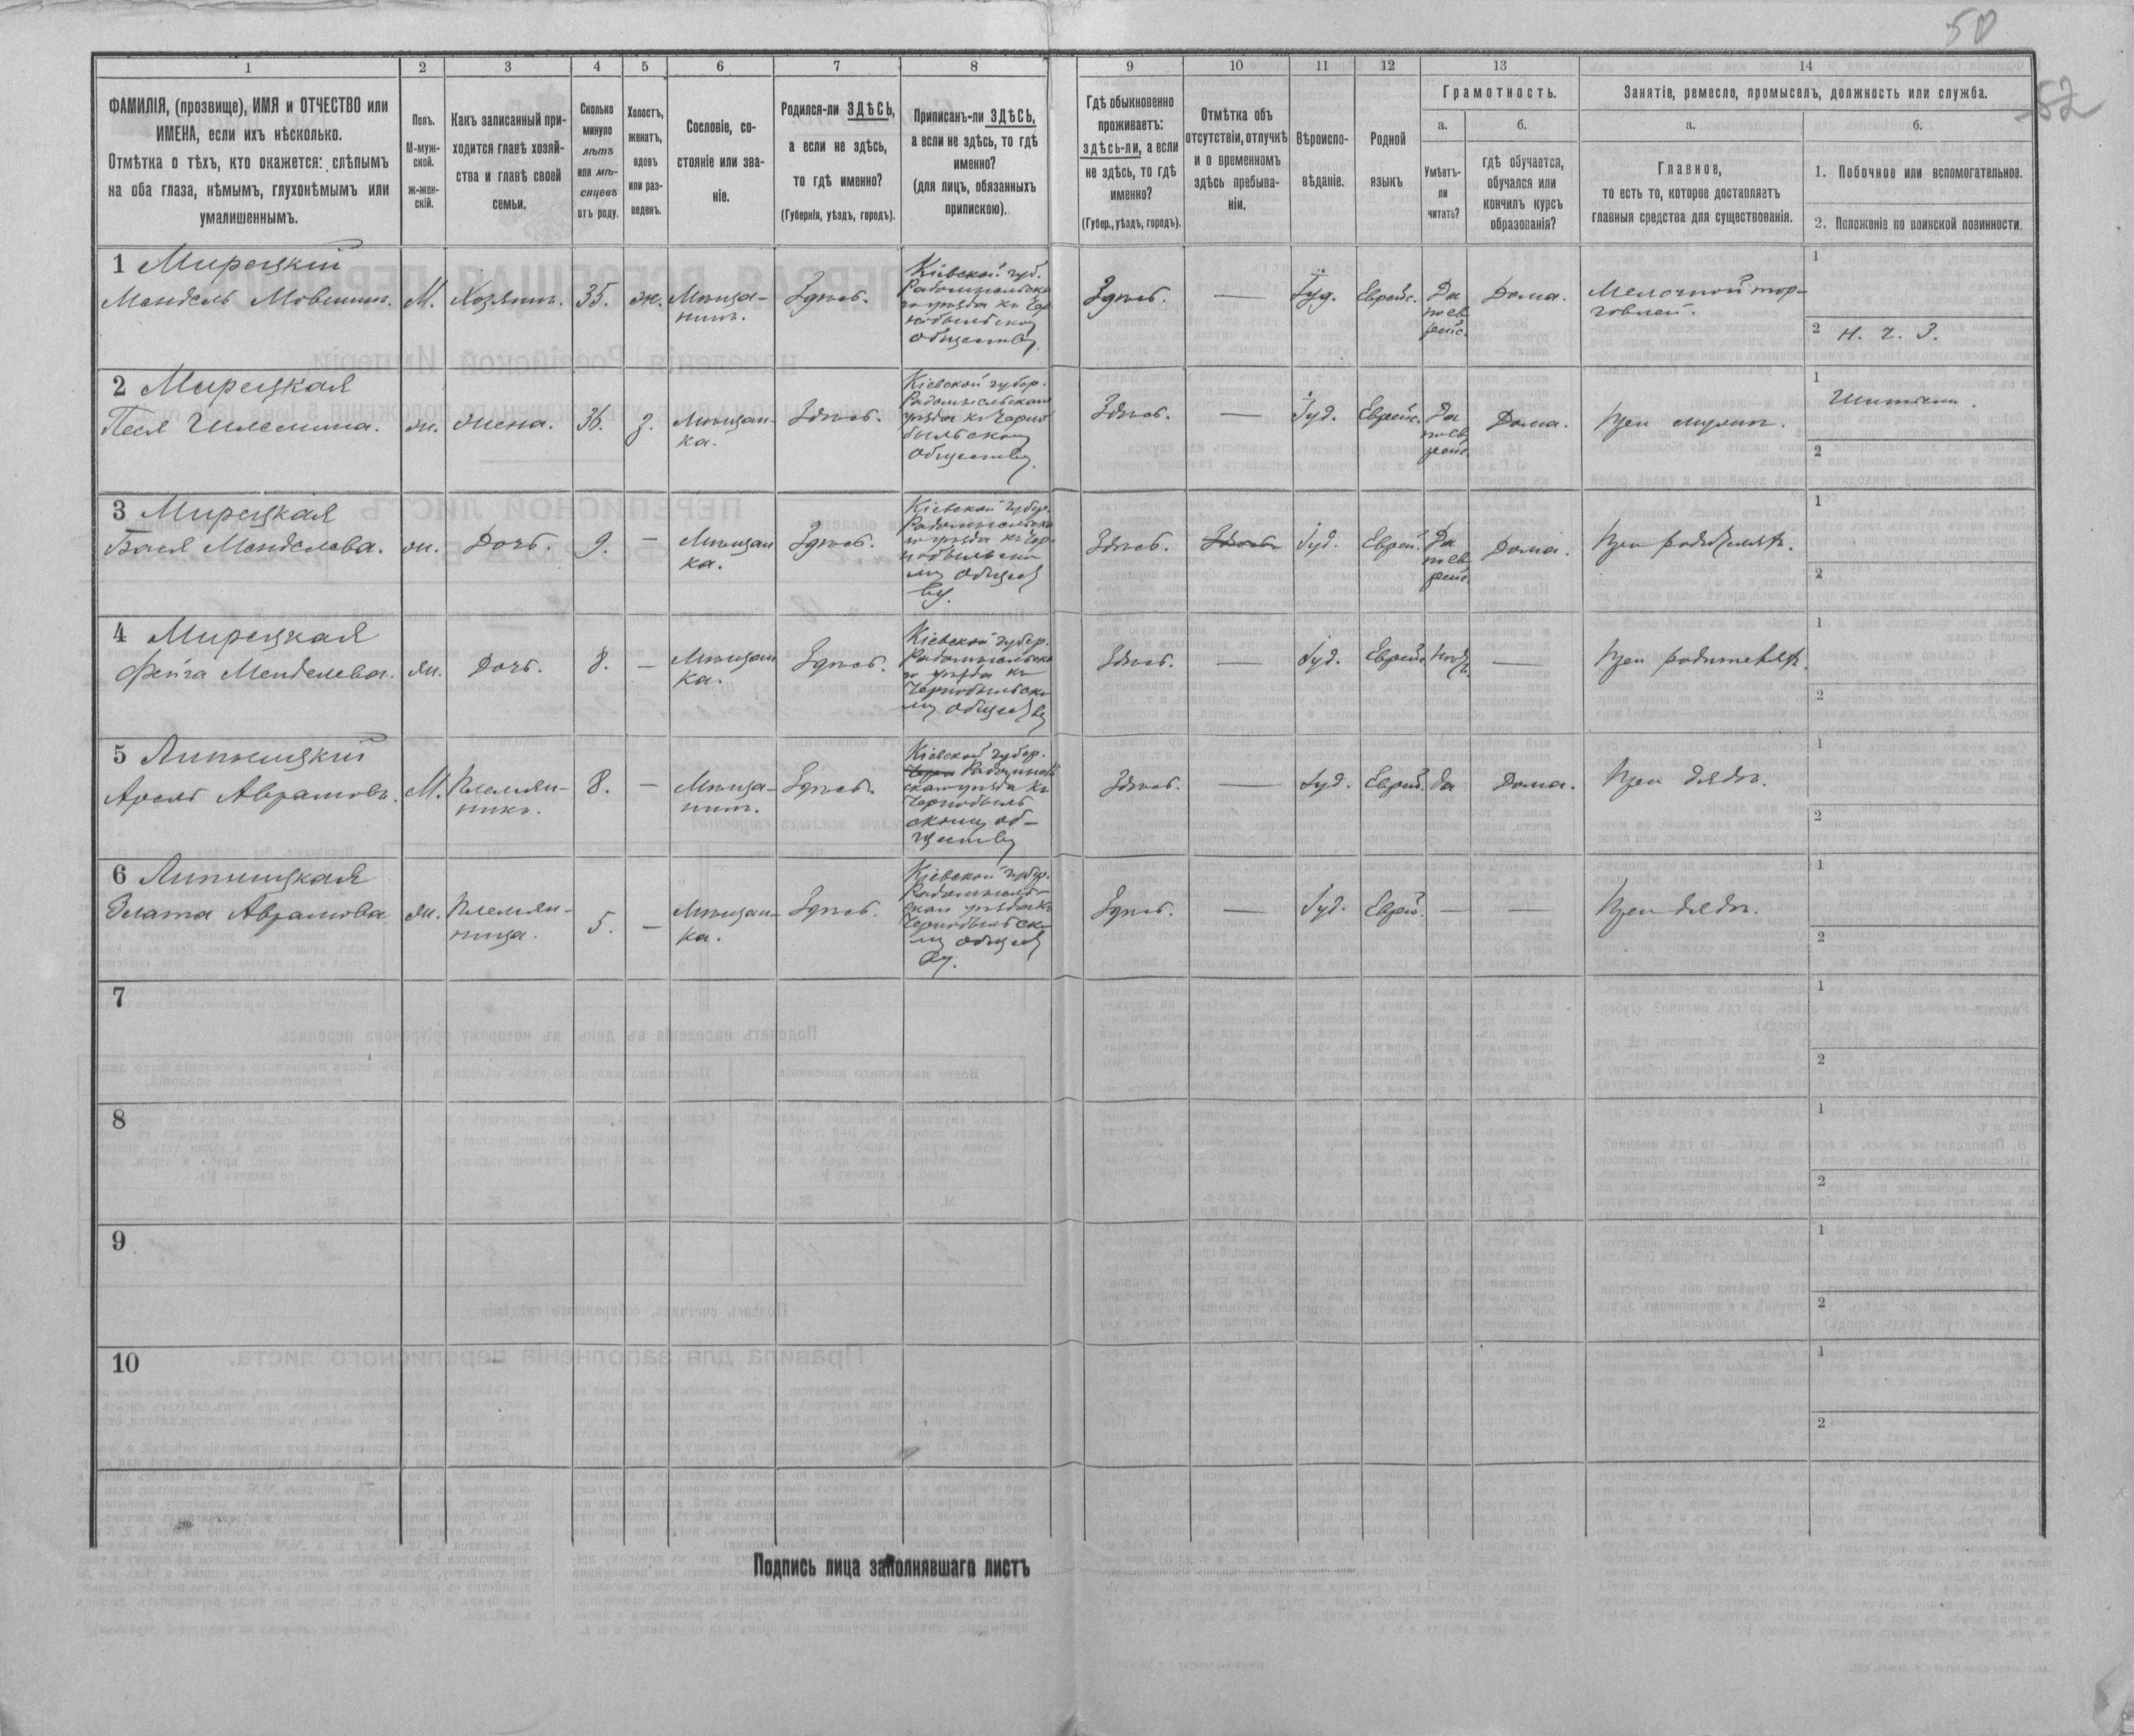 50
52
1
2
3
4
5
6
7
8
9
10
11
12
13
14
ФАМИЛІЯ, (прозвище), ИМЯ и ОТЧЕСТВО или
ИМЕНА, если ихъ нѣсколько.
Отмѣтка о тѣхъ, кто окажется: слѣпымъ
на оба глаза, нѣмымъ, глухонѣмымъ или
умалишеннымъ.
Полъ.
М-муж-
ской.
ж-жен-
скій.
Какъ записанный при-
ходится главѣ хозяй-
ства и главѣ своей
семьи.
Сколько
минуло
лѣтъ
или мѣ-
сяцевъ
отъ роду.
Холостъ,
женатъ,
вдовъ
или раз-
веденъ.
Сословіе, со-
стояніе или зва-
ніе.
Родился-ли ЗДѢСЬ,
а если не здѣсь,
то гдѣ именно?
(Губернія, уѣздъ, городъ).
Приписанъ-ли ЗДѢСЬ,
а если не здѣсь, то гдѣ
именно?
(для лицъ, обязанныхъ
припискою).
Гдѣ обыкновенно
проживаетъ:
здѣсь-ли, а если
не здѣсь, то гдѣ
именно?
(Губер., уѣздъ, городъ).
Отмѣтка объ
отсутствіи, отлучкѣ
и о временномъ
здѣсь пребыва-
ніи.
Вѣроиспо-
вѣданіе.
Родной
языкъ
Грамотность.
а.
Умѣетъ-
ли
читать?
б.
гдѣ обучается,
обучался или
кончилъ курсъ
образованія?
Занятіе, ремесло, промыселъ, должность или служба.
а.
Главное,
то есть то, которое доставляетъ
главныя средства для существованія.
б.
1. Побочное или вспомогательное.
2. Положеніе по воинской повинности.
1 Мирецкій
Мендель Мовшинъ. М. Хозяинъ. 35. ж. Мѣща-
нинъ.
Здѣсь.
Кіевской губ.
Радомысльска
го уѣзда къ Чер
нобыльскому
обществу.
Здѣсь. — Іуд. Еврейс. Да
по ев
рейс.
Дома.
Мелочной тор-
говлей.
1
2 Н. Ч. З.
2 Мирецкая
Песя жн. жена. 36. з. Мѣщан-
ка.
Здѣсь.
Кіевской губер.
Радомысльскаго
уѣзда къ Черно
быльскому
обществу.
Здѣсь. — Іуд. Еврейс. Да
по ев
рейс
Дома. При мужѣ.
1 Шитьемъ.
2
3 Мирецкая
Бася Менделева. жн. Дочь. 9. — Мѣщан
ка.
Здѣсь.
Кіевской губер.
Радомысльска
го уѣзда къ Чер
нобыльско
му общест
ву.
Здѣсь. Здѣсь Іуд. Еврей. Да
по ев
рейс.
Дома. При родителяхъ.
1
2
4 Мирецкая
Фейга Менделева. жн. Дочь. 8. — Мѣщан
ка.
Здѣсь.
Кіевской губер.
Радомысльска
го уѣзда къ
Чернобыльско
му обществу
Здѣсь. — Іуд. Еврейс. Нѣтъ — При родителяхъ.
1
2
5 Липницкій
Арель Аврамовъ. М. Племян-
никъ.
8. — Мѣща-
нинъ.
Здѣсь.
Кіевской губер.
Радомысль
скаго уѣзда къ
Чернобыль
скому об-
ществу
Здѣсь. — Іуд. Еврей. Да Дома. При дядѣ.
1
2
6 Липницкая
Злата Аврамова жн. Племян-
ница.
5. — Мѣщан-
ка.
Здѣсь.
Кіевской губер.
Радомысль-
скаго уѣзда къ
Чернобыльско
му общест
ву.
Здѣсь. — Іуд. Еврей. — — При дядѣ.
1
2
7
1
2
8
1
2
9
1
2
10
1
2
Подпись лица заполнявшаго листъ